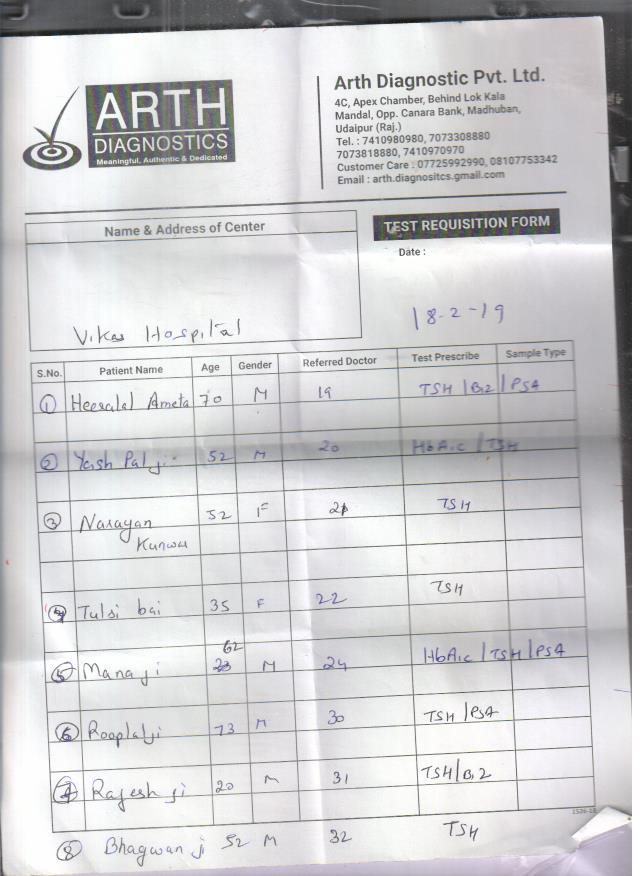 ARTH
DIAGNOSTICS
Meaningful, Authentic & Dedicated
Arth Diagnostic Pvt. Ltd.
4C, Apex Chamber, Behind Lok Kala
Mandal, Opp. Canara Bank, Madhuban,
Udaipur (Raj.)
Tel. : 7410980980, 7073308880
7073818880, 7410970970
Customer Care : 07725992990, 08107753342
Email : arth.diagnositcs.gmail.com
Name & Address of Center
TEST REQUISITION FORM
Date :
Vikas Hospital
18-2-19
S.No. Patient Name Age Gender Referred Doctor Test Prescribe Sample Type
1 Heeralal Ameta 70 M 19 TSH / B12 / PSA
2 Yash Pal ji 52 M 20 HbA1c / TSH
3 Narayan 52 F 21 TSH
Kunwar
4 Tulsi bai 35 F 22 TSH
62
5 Mana ji M 24 HbA1c / TSH / PSA
6 Rooplalji 73 M 30 TSH / PSA
7 Rajesh ji 20 M 31 TSH / B12
1526-18
8 Bhagwan ji 52 M 32 TSH